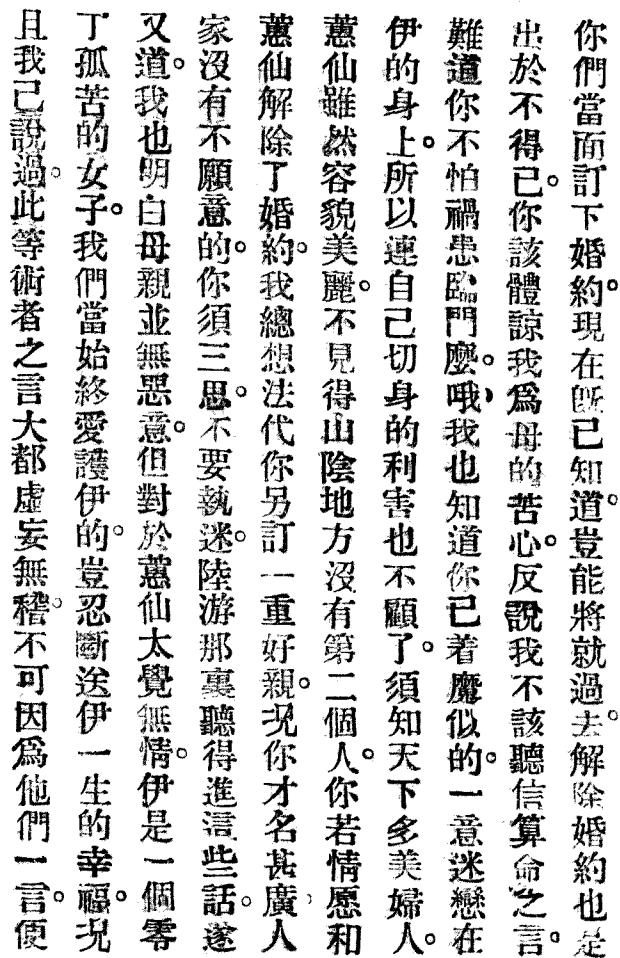 你們當面訂下婚約。現在既已知道。豈能將就過去。解除婚約也是
出於不得已。你該體諒我爲母的苦心。反說我不該聽信算命之言。
難道你不怕禍患臨門麼。哦、我也知道你已着魔似的。一意迷戀在
伊的身上。所以連自己切身的利害也不顧了。須知天下多美婦人。
蕙仙雖然容貌美麗。不見得山陰地方沒有第二個人。你若情愿和
蕙仙解除了婚約。我總想法代你另訂一重好親。况你才名甚廣、人
家沒有不願意的。你須三思。不要執迷。陸游那裏聽得進這些話。遂
又道。我也明白母親並無惡意。但對於蕙仙太覺無情。伊是一個零
丁孤苦的女子。我們當始終愛護伊的。豈忍斷送伊一生的幸福。况
且我已說過。此等術者之言大都虛妄無稽。不可因爲他們一言。便